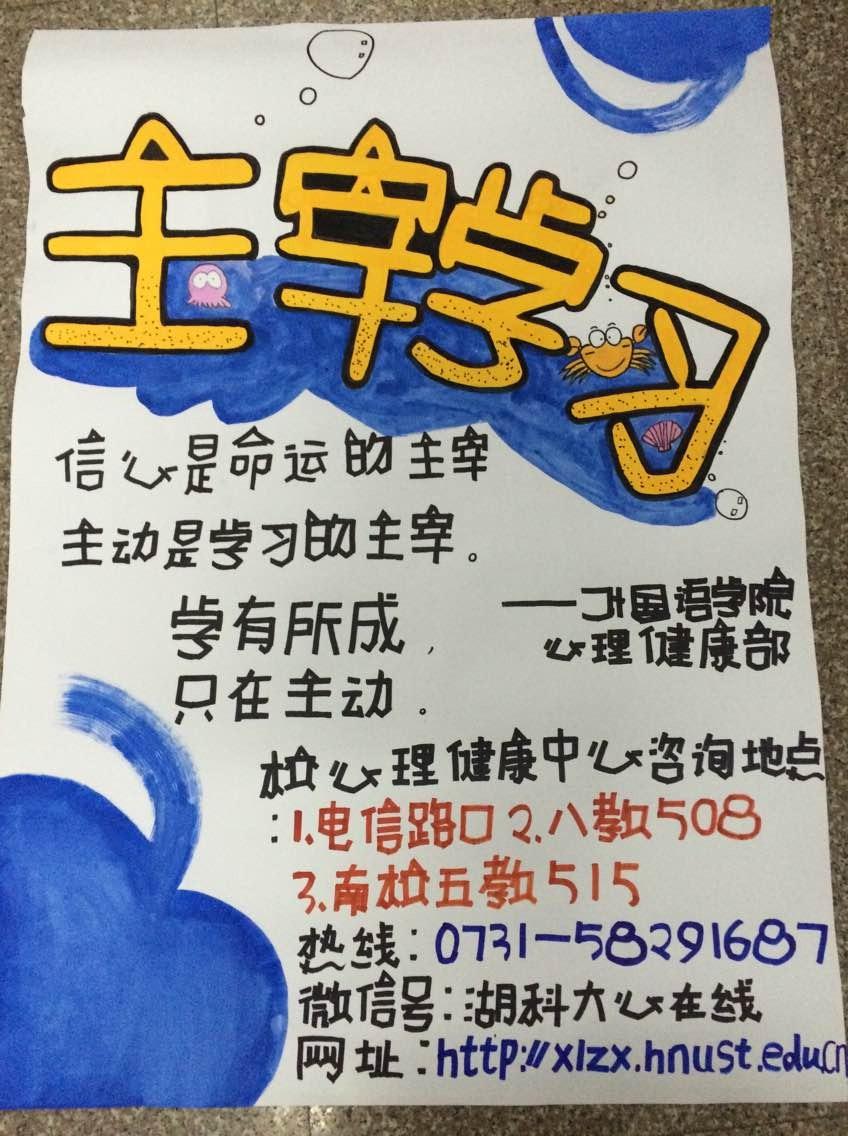 主宰学习
信心是命运的主宰
主动是学习的主宰。
学有所成,
只在主动.
——外国语学院
心理健康部
校心理健康中心咨询地点
:1.电信路口2.八教508
3.南校五教515
热线:0731-58291687
微信号:湖科大心在线
网址:http://xlzx.hnust.edu.cn